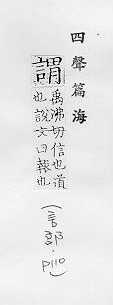 四聲篇海
謂
禹沸切信也道
也說文曰報也
(言部·P110)